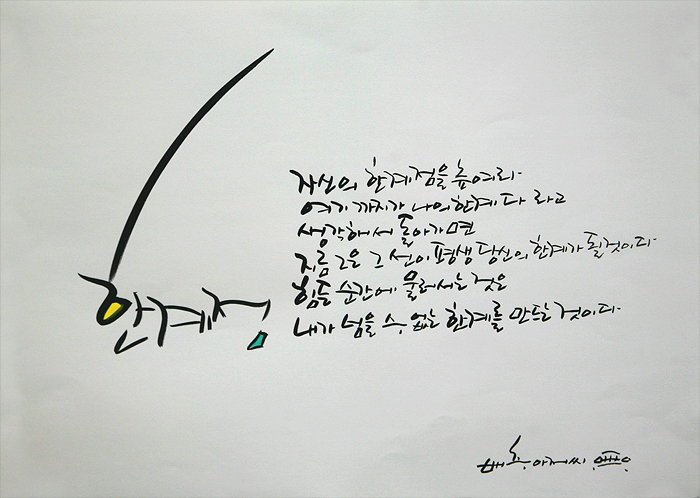 한계점
자신의 한계점을 높여라
여기 까지가 나의 한계다 라고
생각해서 돌아가면
지금 그은 그 선이 평생 당신의 한계가 될것이다
힘든 순간에 물러서는 것은
내가 넘을 수 없는 한계를 만드는 것이다
배